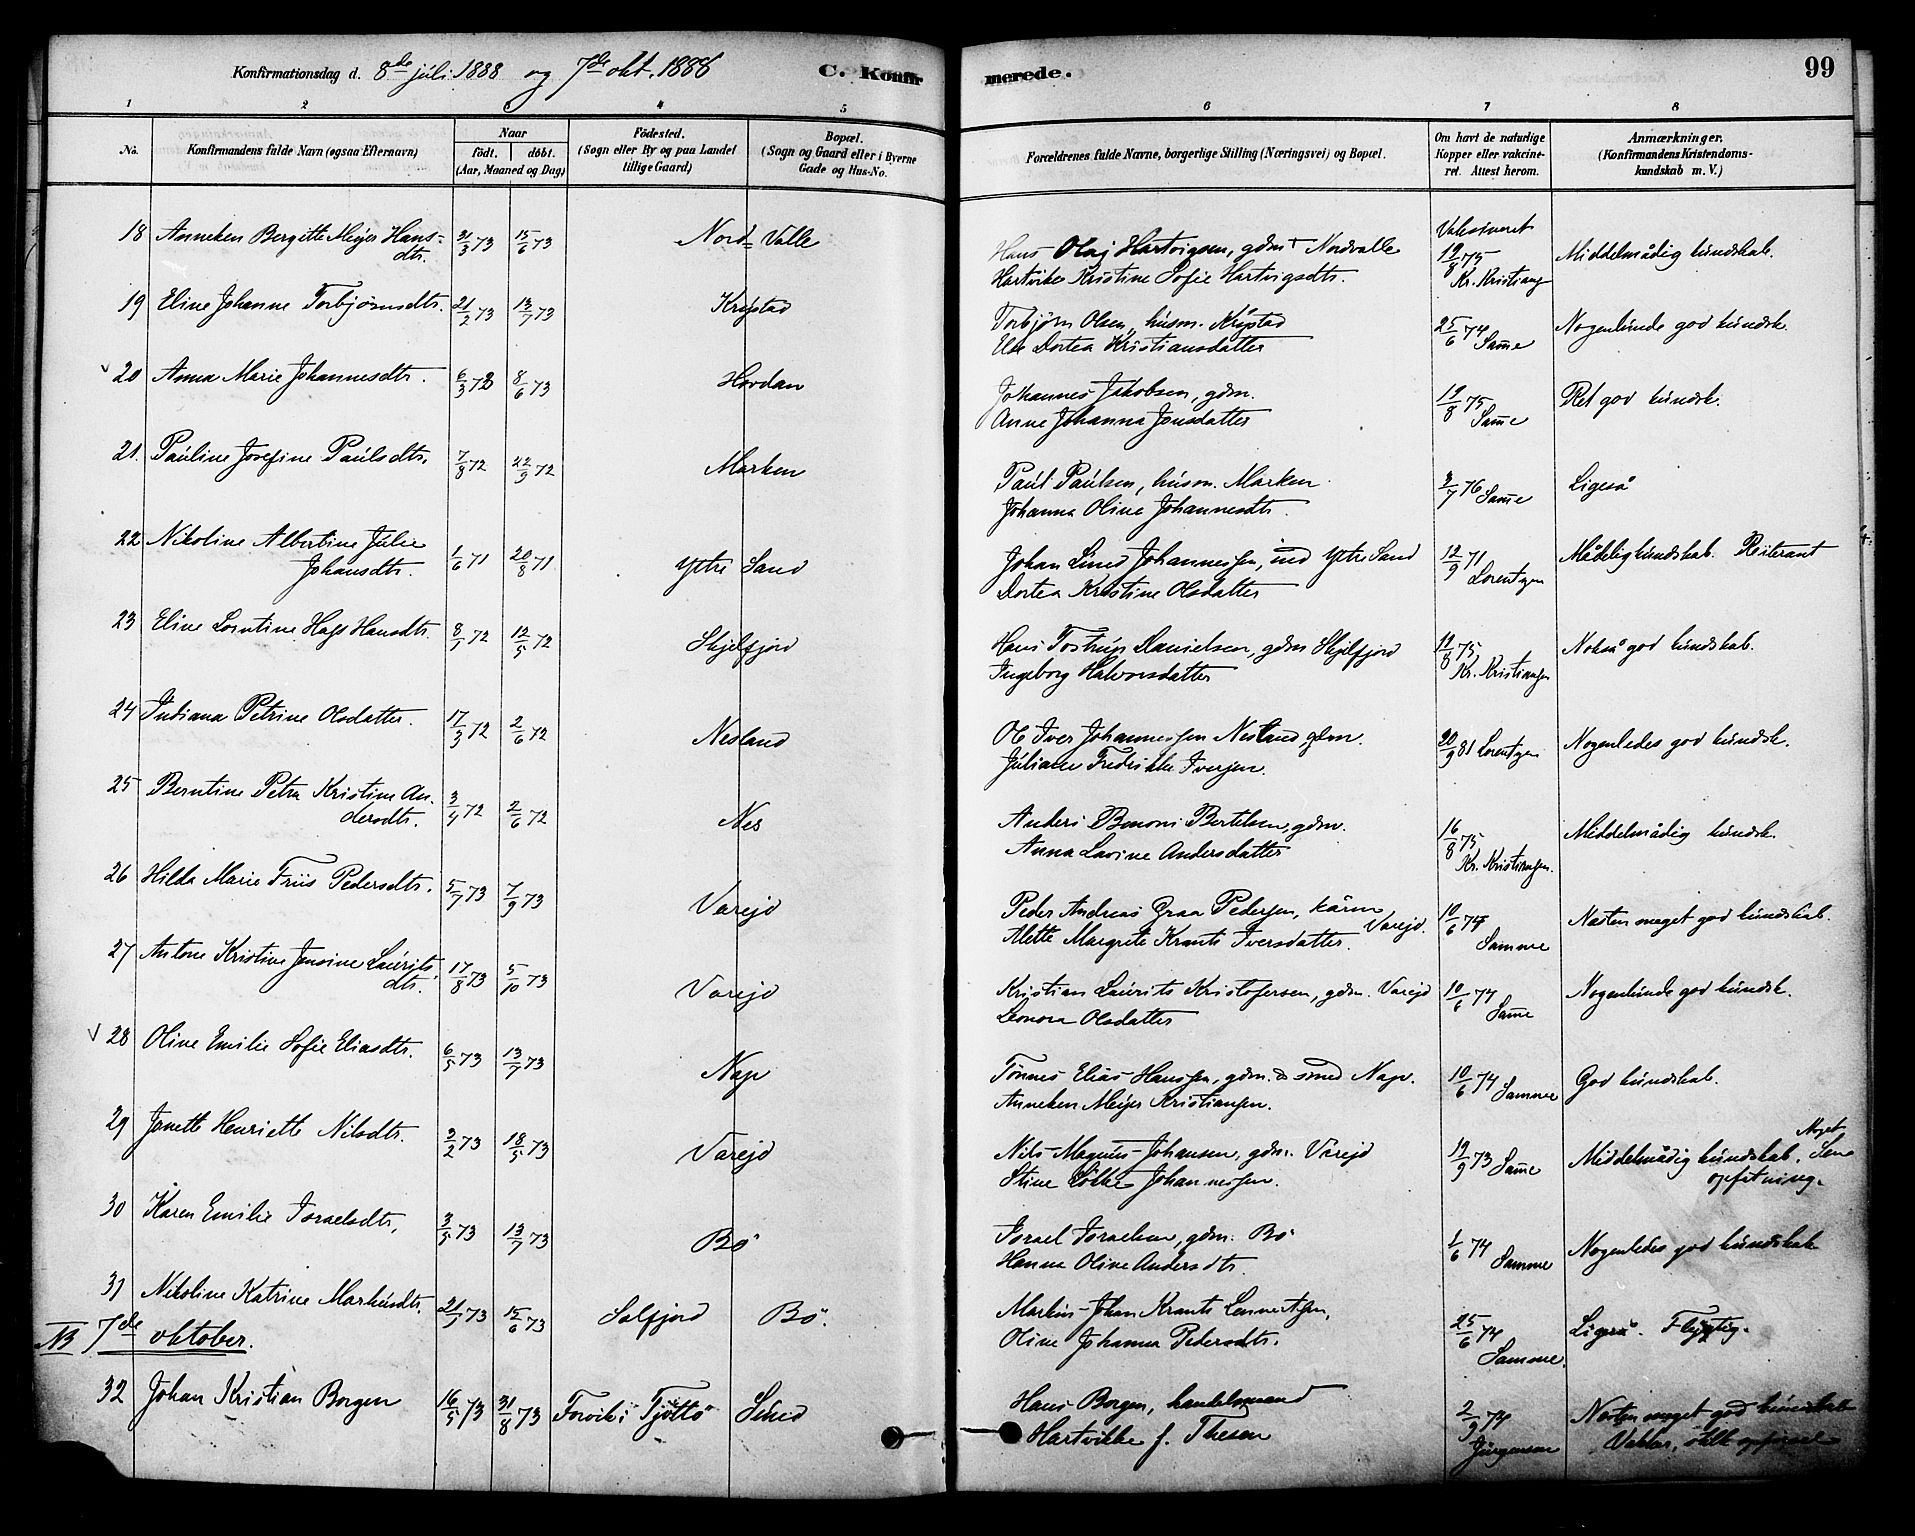 Konfirmationsdag d. 8de juli 1888 og 7de okt. 1888 C. Konfir merede. 99
1 2 3 4 5 6 7 8
No. Konfirmandens fulde Navn (ogsaa Efternavn)
Naar
födt. döbt.
(Aar, Maaned og Dag)
Födested.
(Sogn eller By og paa Landet
tillige Gaard)
Bopæl.
(Sogn og Gaard eller i Byerne
Gade og Hus-No.
Forældrenes fulde Navne, borgerlige Stilling (Næringsvei) og Bopæl.
Om havt de naturlige
Kopper eller vakcine-
ret. Attest herom.
Anmærkninger.
(Konfirmandens Kristendoms-
kundskab m. V.)
18 Anneken Bergitte Meyer Hans- dtr. 31/3 73 15/6 73 Nord- Valle
Hans Olaj Hartvigsen, gdm Nordvalle
Hartvikke Kristine Sofie Hartvigsdtr.
19/8 75 Kr. Kristians Middelmådig kundskab.
19 Eline Johanne Torbjørnsdtr. 21/2 73 13/7 73 Kristad
Torbjørn Olsen, husm. Kristad
Else Dortea Kristiansdatter
25/6 74 Samme Nogenlunde god kundsk.
20 Anna Marie Johannesdtr. 6/3 73 8/6 73 Hovdan
Johannes Jakobsen, gdm.
Anne Johanna Jonsdatter
19/8 75 Samme Ret god kundsk.
21. Pauline Josefine Paulsdtr. 7/8 72 22/9 72 Marken
Paul Paulsen, husm. Marken
Johanna Oline Johannesdtr.
3/7 76 Samme Ligeså
22 Nikoline Albertine Julie
Johansdtr. 1/6 71 20/8 71 Ytre Sand
Johan Lund Johannessen, ind Ytre Sand
Dortea Kristine Olsdatter
12/9 71 Lorentzen Mådelig kundskab. Reiterant
23 Eline Lorntine Hags Hansdtr. 8/1 72 12/5 72 Skjelfjord
Hans Tostrup Danielsen, gdm Skjelfjord
Ingeborg Halvorsdatter
19/8 75 Kr. Kristiansen Nokså god kundskab.
24 Indiana Petrine Olsdatter. 17/3 72 2/6 72 Nesland
Ole Iver Johannessen Nesland gdm.
Juliane Fredrikke Iversen.
20/9 81 Lorentzen Nogenledes god kundsk.
25 Berntine Petra Kristine An-
dersdtr. 3/4 72 2/6 72 Nes
Anders Benoni Bertelsen, gdm.
Anna Lovine Andersdatter
16/8 75 Kr. Kristiansen. Middelmådig kundsk.
26 Hilda Marie Friis Pedersdtr. 5/7 73 7/9 73 Varejd
Peder Andreas Graa Pedersen, kårm
Alette Margrete Krants Iversdatter. Varejd.
10/6 74 Samme Næsten meget god kundskab.
27 Antone Kristine Jensine Laurits
dtr. 17/8 73 5/10 73 Varejd
Kristian Laurits Kristofersen, gdm. Varejd
Leonora Olsdatter
10/6 74 Samme Nogenlunde god kundsk.
28 Oline Emilie Sofie Eliasdtr. 6/5 73 13/7 73 Nap
Tönnes Elias Hanssen, gdm. & smed Nap.
Anneken Meijer Kristiansen.
10/6 74 Samme God kundskab.
29 Janette Henriette Nilsdtr. 3/2 73 18/5 73 Varejd
Nils Magnus Johansen, gdm. Varejd
Stine Lökke Johannessen.
19/9 73 Samme Middelmådig kundskab. Noget Sen
opfatning.
30 Karen Emilie Israelsdtr. 3/5 73 13/7 73 Bö
Israel Israelsen, gdm. Bö
Hanna Oline Andersdtr.
1/6 74 Samme Nogenledes god kundskab
31 Nikoline Katrine Markusdtr. 21/1 73 15/6 73 Solfjord Bö
Markus Johan Krants Lennertsen,
Oline Johanna Pedersdtr.
25/6 74 Samme. Ligeså. Flygtig.
NB 7de oktober.
32 Johan Kristian Borgen 16/5 73 31/8 73 Forvik i Tjöttö Sund
Hans Borgen, handelsmand
Hartvikke f. Thesen
2/9 74 Jürgensen Næsten meget god kundskab